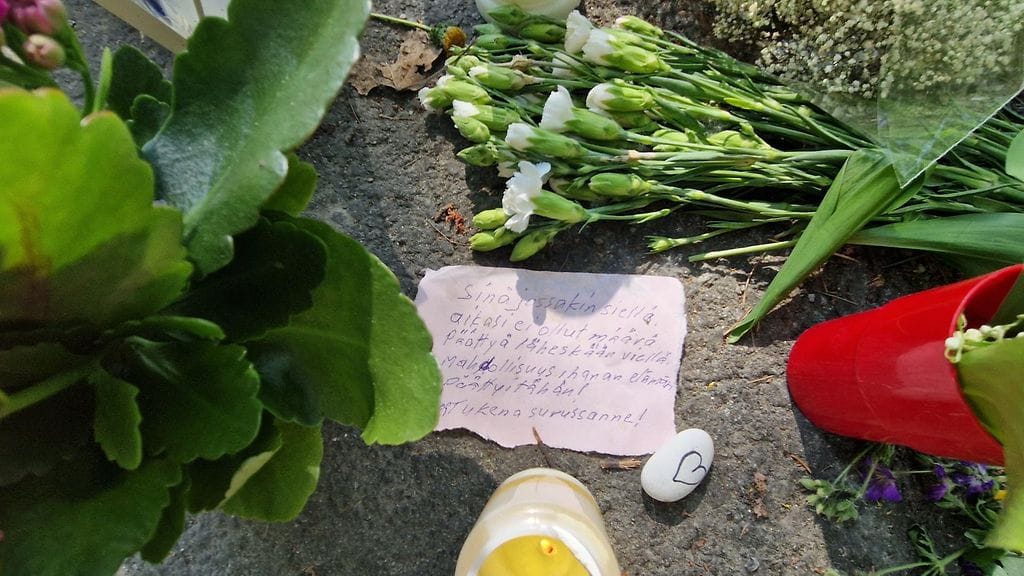 Sinä jossakin siellä,
aikasi ei ollut määrä
päättyä läheskään vielä
Mahdollisuus ihanan elämän
päättyi tähän!
Tukena surussanne!